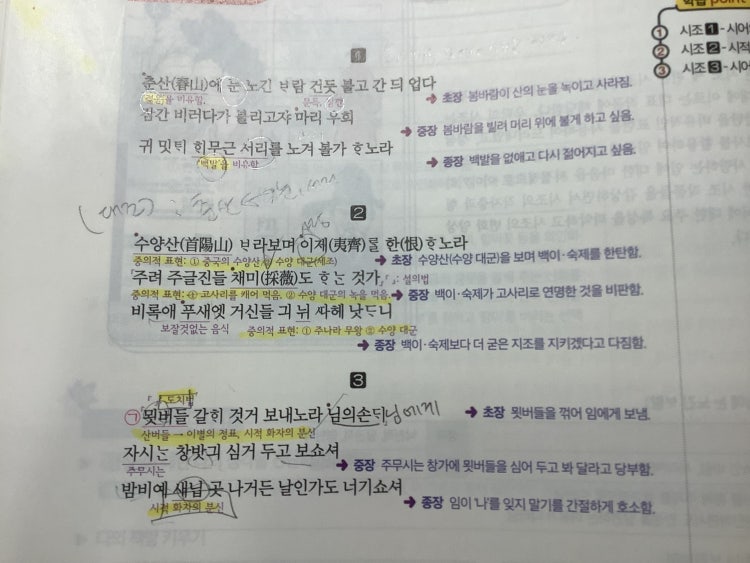 학습 point
① 시조 1 - 시어
② 시조 2 - 시적
③ 시조 3 - 시어
1
춘산(春山)에 눈 노긴 ᄇᆞ람 건듯 불고 간 ᄃᆡ 업다
을 비유함.
초장 봄바람이 산의 눈을 녹이고 사라짐.
잠간 비러다가 불리고쟈 마리 우희
중장 봄바람을 빌려 머리 위에 불게 하고 싶음.
귀 밋ᄐᆡ ᄒᆡ무근 서리를 노겨 볼가 ᄒᆞ노라
백발을 비유함
종장 백발을 없애고 다시 젊어지고 싶음.
2
수양산(首陽山) ᄇᆞ라보며 이제(夷齊)를 한(恨)ᄒᆞ노라
중의적 표현: ① 중국의 수양산 ② 수양 대군(세조)
초장 수양산(수양 대군)을 보며 백이·숙제를 한탄함.
주려 주글진들 채미(採薇)도 ᄒᆞᄂᆞᆫ 것가
『 』: 설의법
중의적 표현: ① 고사리를 캐어 먹음. ② 수양 대군의 녹을 먹음.
중장 백이·숙제가 고사리로 연명한 것을 비판함.
비록애 푸새엣 거신들 긔 뉘 ᄯᅡ헤 낫ᄃᆞ니
보잘것없는 음식
중의적 표현: ① 주나라 무왕 ② 수양 대군
종장 백이·숙제보다 더 굳은 지조를 지키겠다고 다짐함.
3
『 』: 도치법
㉠묏버들 갈ᄒᆡ 것거 보내노라 님의손ᄃᆡ 님에게
산버들 → 이별의 정표, 시적 화자의 분신
초장 묏버들을 꺾어 임에게 보냄.
자시ᄂᆞᆫ 창밧긔 심거 두고 보쇼셔
주무시는
중장 주무시는 창가에 묏버들을 심어 두고 봐 달라고 당부함.
밤비예 새닙 곳 나거든 날인가도 너기쇼셔
시적 화자의 분신
종장 임이 '나'를 잊지 말기를 간절하게 호소함.